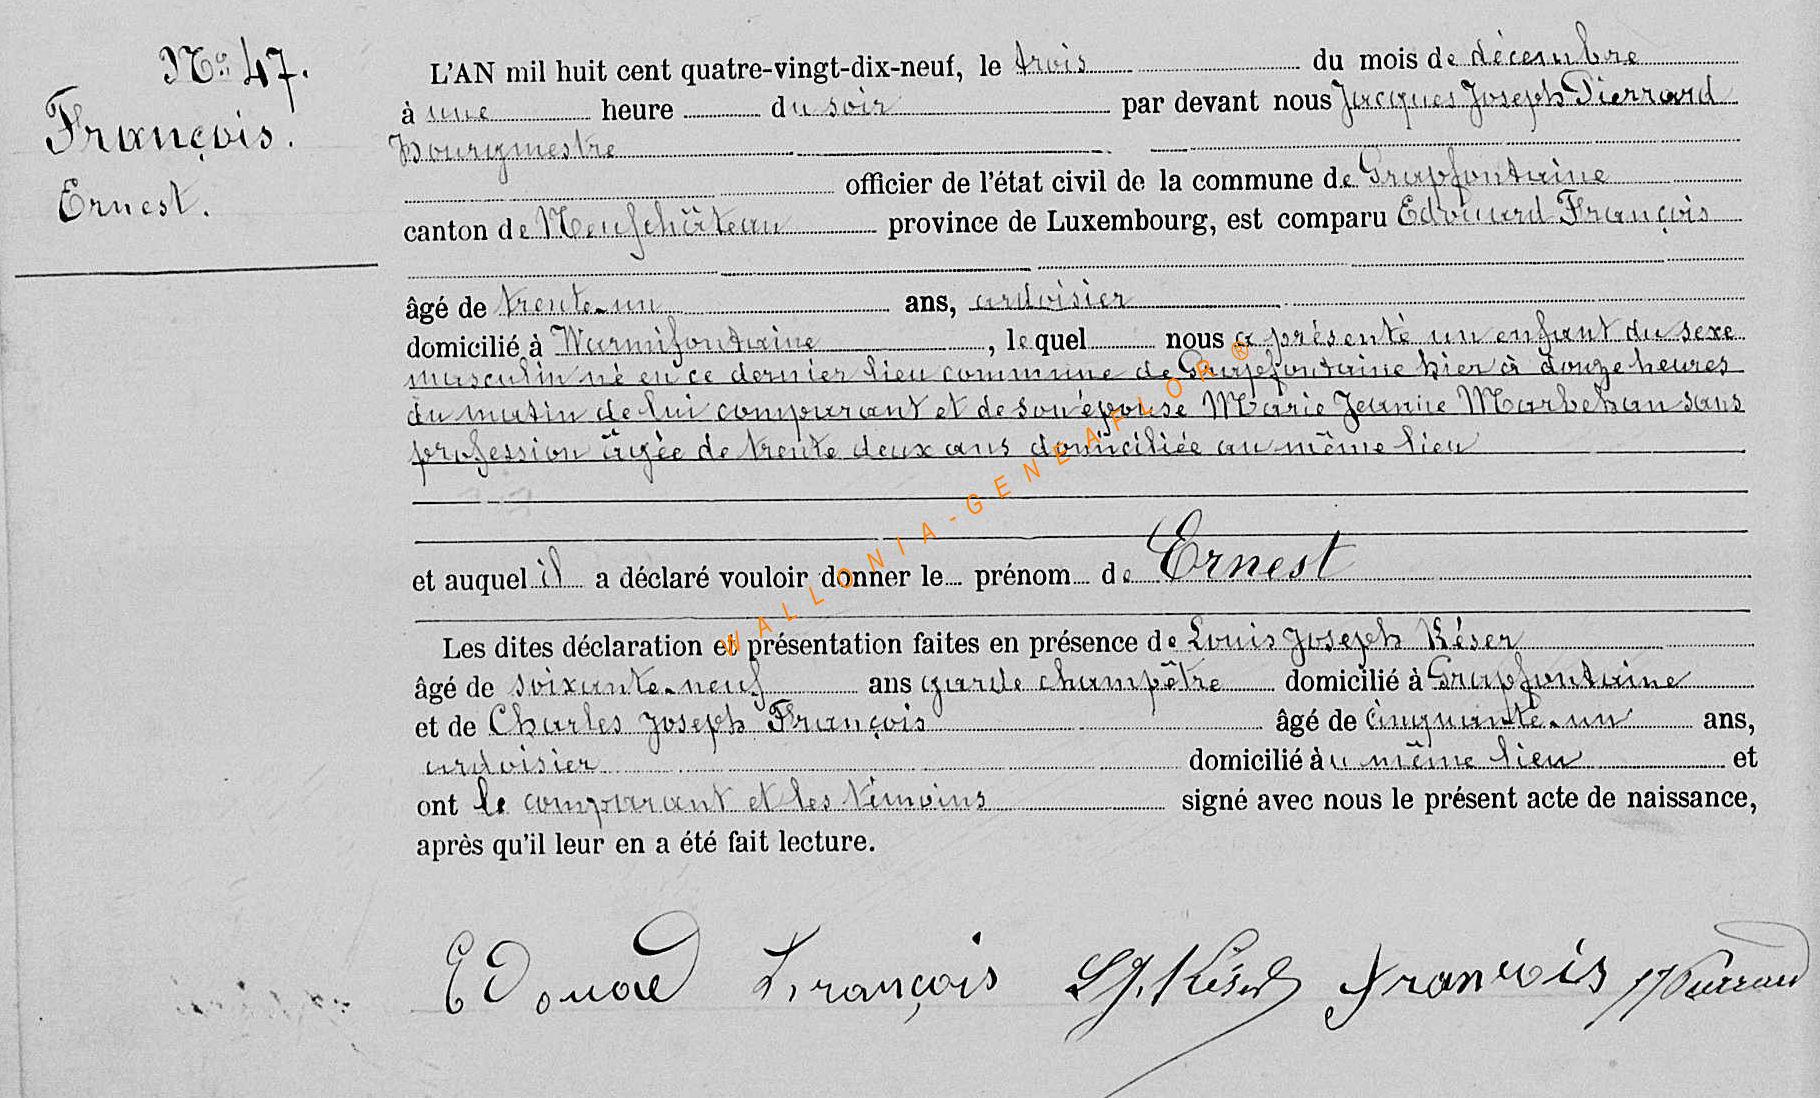 No 47.
François.
Ernest.
L'AN mil huit cent quatre-vingt-dix-neuf, le trois du mois de décembre
à une heure du soir par devant nous Jacques Joseph Pierrard
Bourgmestre
officier de l'état civil de la commune de Grapfontaine
canton de Neufchâteau province de Luxembourg, est comparu Edouard François
âgé de trente-un ans, ardoisier
domicilié à Warmifontaine, lequel nous a présenté un enfant du sexe
masculin né en ce dernier lieu commune de Grapfontaine hier à douze heures
du matin de lui comparant et de son épouse Marie Jeanne Marbehan sans
profession âgée de trente deux ans domiciliée au même lieu
et auquel il a déclaré vouloir donner le prénom de Ernest
Les dites déclaration et présentation faites en présence de Louis Joseph Késer
âgé de soixante-neuf ans garde champêtre domicilié à Grapfontaine
et de Charles Joseph François âgé de cinquante-un ans,
ardoisier domicilié au même lieu et
ont le comparant et les témoins signé avec nous le présent acte de naissance,
après qu'il leur en a été fait lecture.
Edouad François LJ. Késer françois JJ Pierrard
WALLONIA-GENEAFLOR®